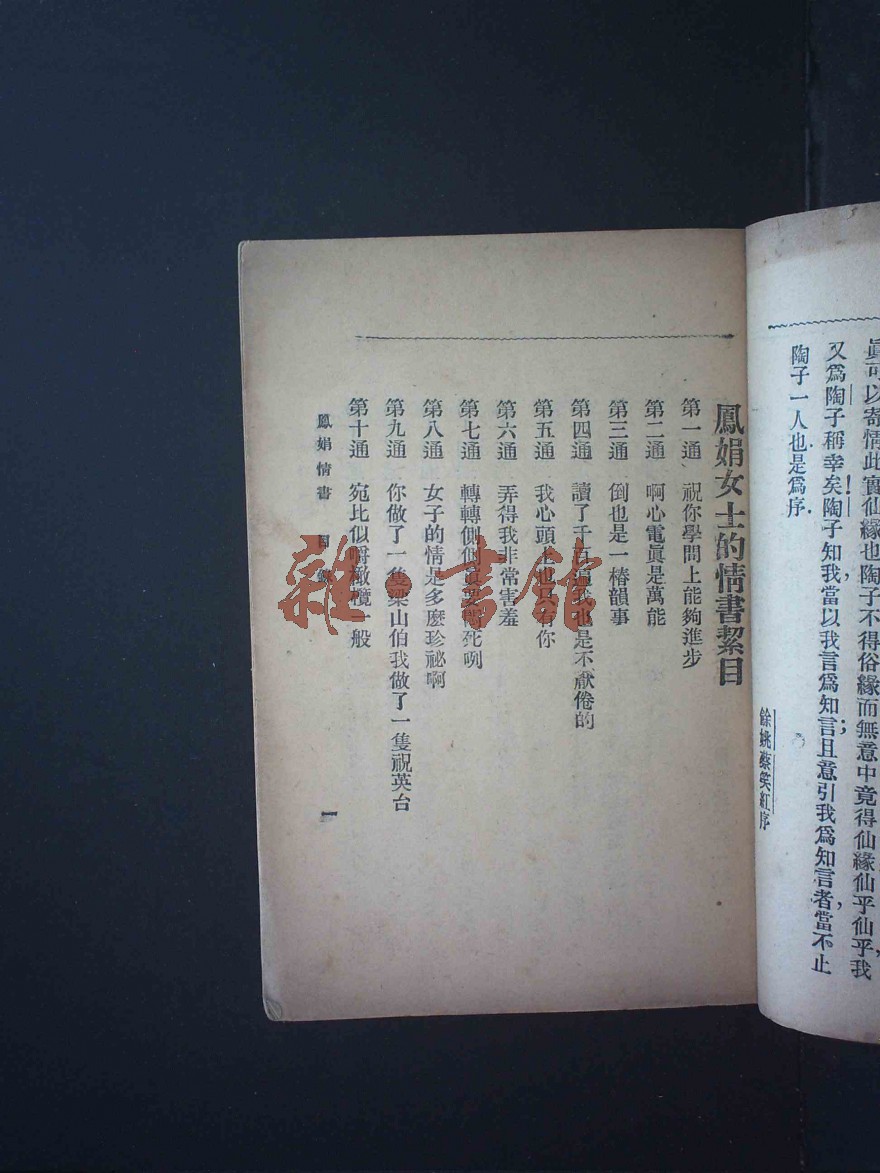 眞可以寄情此實仙緣也陶子不得俗緣而無意中竟得仙緣仙乎仙乎,我
又爲陶子稱幸矣!陶子知我,當以我言爲知言;且意引我爲知言者,當不止
陶子一人也.是爲序.
餘姚蔡笑紅序
鳳娟女士的情書絜目
第一通 祝你學問上能夠進步
第二通 啊心電眞是萬能
第三通 倒也是一樁韻事
第四通 讀了千百遍我也是不厭倦的
第五通 我心頭上也只有你
第六通 弄得我非常害羞
第七通 轉轉側側眞要 死咧
第八通 女子的情是多麽珍祕啊
第九通 你做了一隻梁山伯我做了一隻祝英台
第十通 宛比似嚼橄欖一般
鳳娟情書 目錄
一
雜·書館